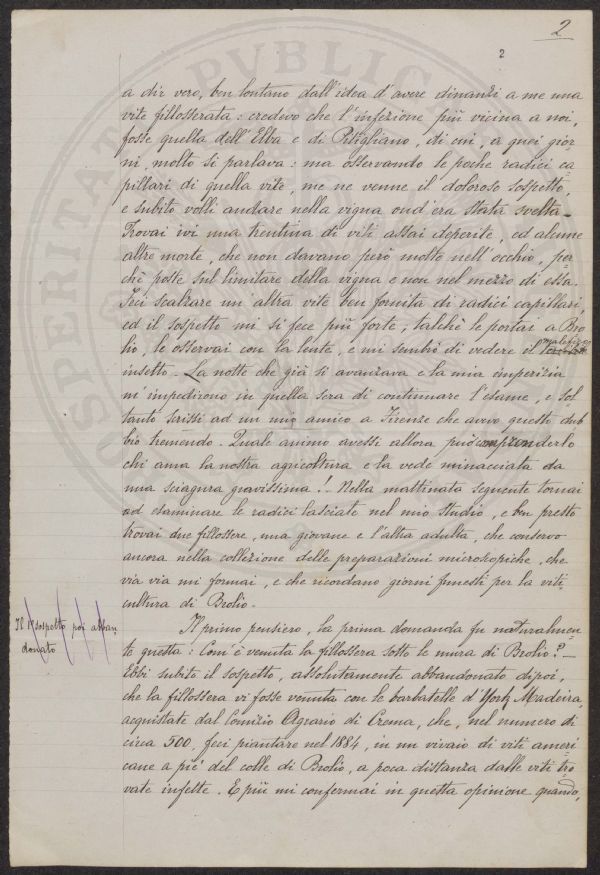 2
2
a dir vero, ben lontano dall'idea d'avere dinanzi a me una
vite fillosserata: credevo che l'infezione più vicina a noi,
fosse quella dell'Elba e di Pitigliano, di cui, a quei gior-
ni, molto si parlava: ma osservando le poche radici ca-
pillari di quella vite, me ne venne il doloroso sospetto,
e subito volli andare nella vigna ond'era stata svelta.
Trovai ivi una trentina di viti assai deperite, ed alcune
altre morte, che non davano però molto nell'occhio, per-
chè poste sul limitare della vigna e non nel mezzo di essa.
Feci scalzare un altra vite ben fornita di radici capillari,
ed il sospetto mi si fece più forte, talchè le portai a Bro-
lio, le osservai con la lente, e mi sembrò di vedere il malefico
insetto. La notte che già si avanzava e la mia imperizia
m'impedirono in quella sera di continuare l'esame, e sol-
tanto scrissi ad un mio amico a Firenze che avevo questo dub-
bio tremendo. Quale animo avessi allora può comprenderlo
chi ama la nostra agricoltura e la vede minacciata da
una sciagura gravissima! Nella mattinata seguente tornai
ad esaminare le radici lasciate nel mio studio, e ben presto
trovai due fillossere, una giovane e l'altra adulta, che conservo
ancora nella collezione delle preparazioni microskopiche, che
via via mi formai, e che ricordano giorni funesti per la viti-
cultura di Brolio.
Il 1° sospetto poi abban-
donato
Il primo pensiero, la prima domanda fu naturalmen-
te questa: Com'è venuta la fillossera sotto le mura di Brolio? -
Ebbi subito il sospetto, assolutamente abbandonato dipoi,
che la fillossera vi fosse venuta con le barbatelle d'York Madeira,
acquistate dal Comizio Agrario di Crema, che, nel numero di
circa 500, feci piantare nel 1884, in un vivaio di viti ameri-
cane a piè del colle di Brolio, a poca distanza dalle viti tro-
vate infette. E più mi confermai in questa opinione quando,
SPERITAT
PVBLIC